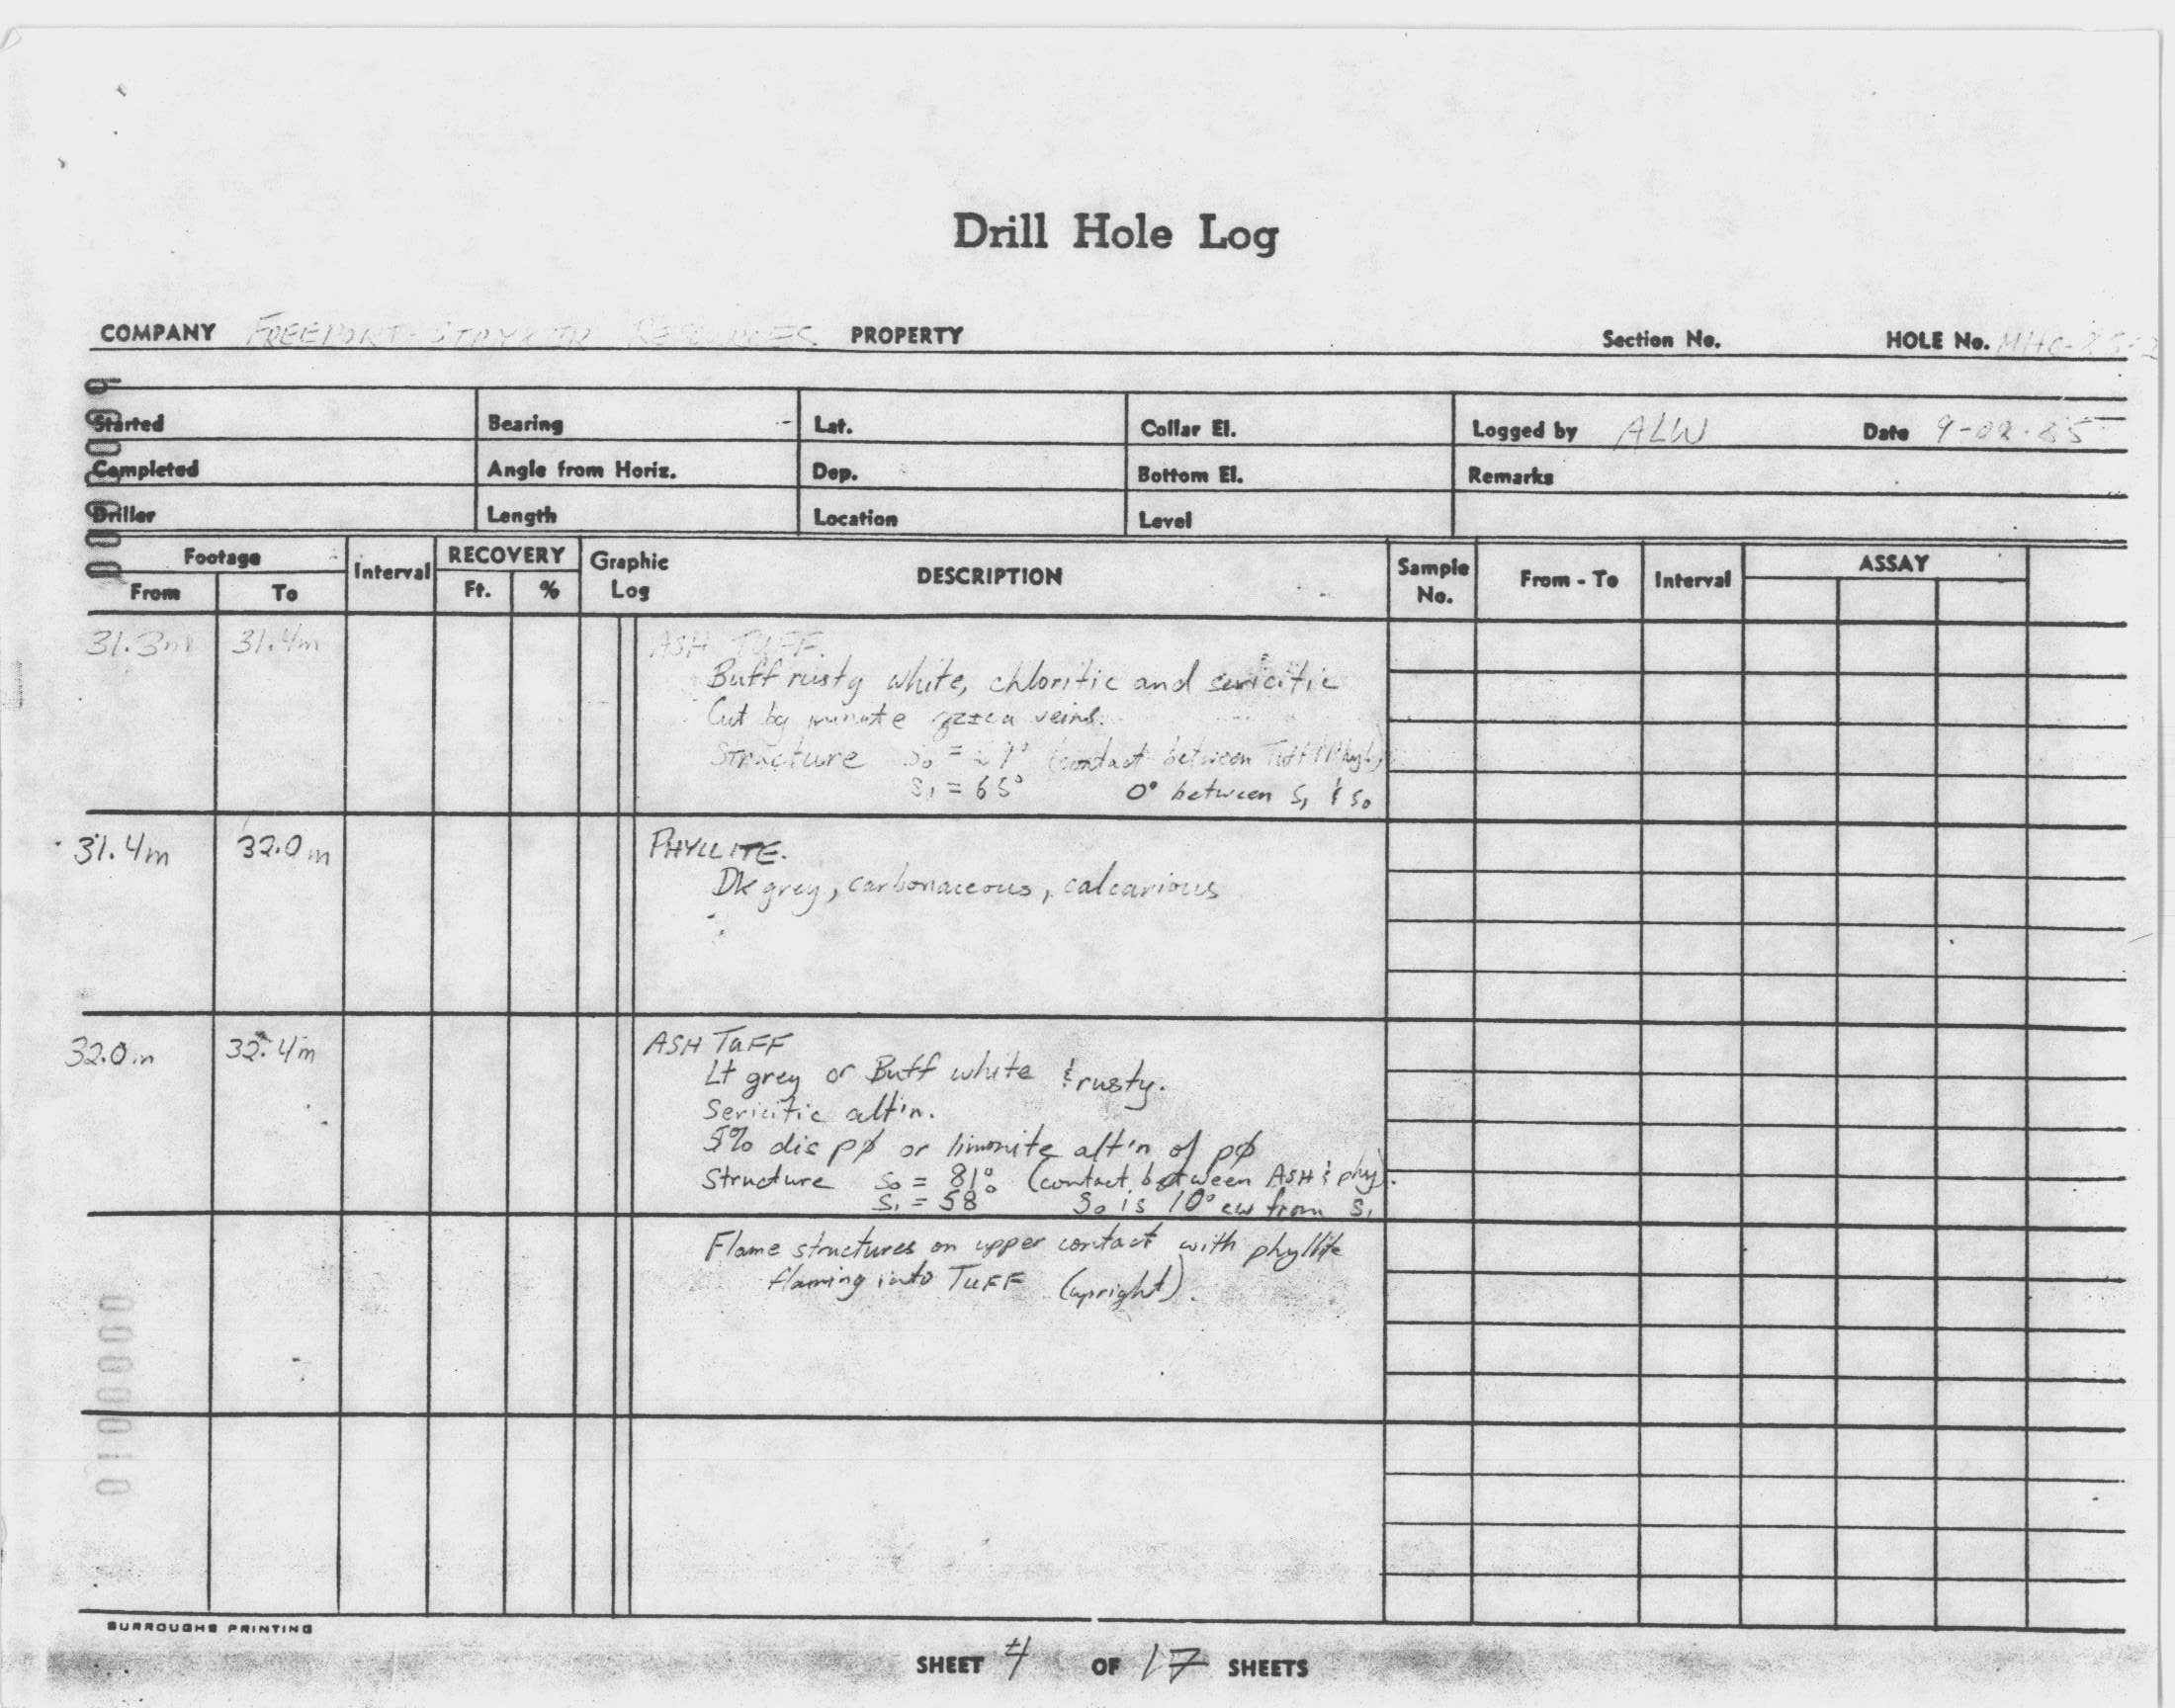 Drill Hole Log
COMPANY RESOURCES PROPERTY Section No. HOLE No.
Started Bearing Lat. Collar El. Logged by ALW Date
Completed Angle from Horiz. Dep. Bottom El. Remarks
Driller Length Location Level
Footage Interval RECOVERY Graphic Log DESCRIPTION Sample No. From - To Interval ASSAY
From To Ft. %
31.3m 31.4m ASH TUFF.
Buff rusty white, chloritic and sericitic
Cut by minute veins.
Structure S₀ = (contact between Tuff
S₁ = 65° 0° between S₁ & S₀
31.4m 32.0m PHYLLITE.
Dk grey, carbonaceous, calcarious
32.0m 32.4m ASH TUFF
Lt grey or Buff white & rusty.
Sericitic alt'n.
5% dis pφ or limonite alt'n of pφ
Structure S₀ = 81° (contact between ASH & phy).
S₁ = 58° S₀ is 10° cw from S₁
Flame structures on upper contact with phyllite
flaming into TUFF (upright).
0000009
0000010
BURROUGHS PRINTING
SHEET 4 OF 17 SHEETS